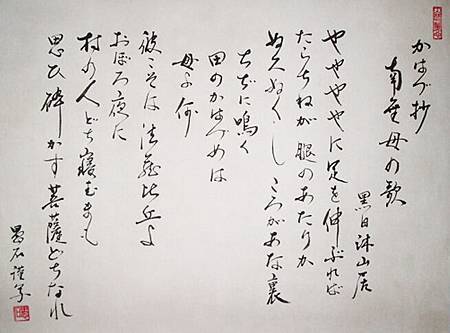 かはづ抄
南無母の歌
山居
やややや に足を伸ぶれば
たらちねが眼のあたりか
ぬくし ころがあな裏
ちぢに鳴く
田のかはづめは
母よ何
彼こそは 法蔵比丘よ
おぼろ夜に
村の人どち寝むまも
思ひ砕かす菩薩どちなれ
愚石謹写